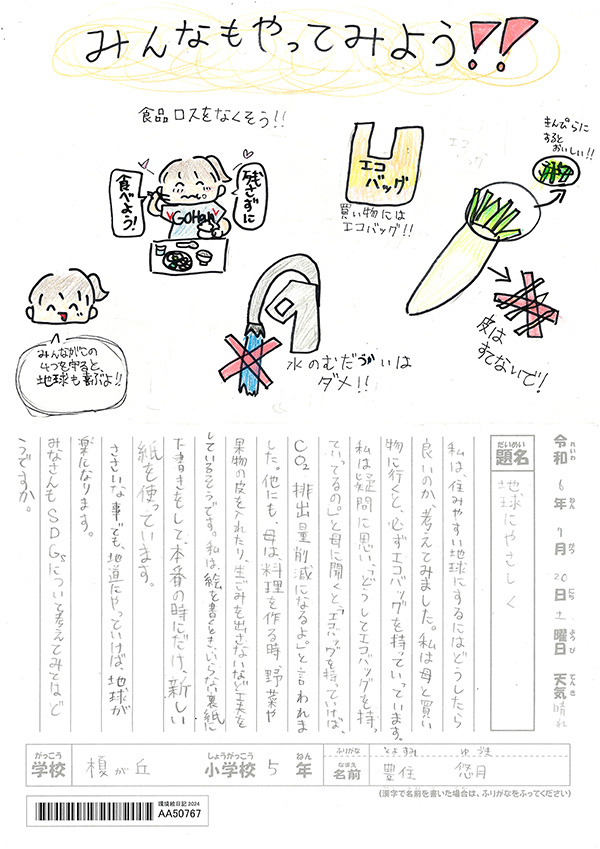 みんなもやってみよう!!
食品ロスをなくそう!!
残さずに
食べよう!
GOHAN
エコ
バッグ
エコ
バッグ
買い物には
エコバッグ!!
きんぴらに
すると
おいしい!!
皮は
すてないで!
水のむだづかいは
ダメ!!
みんながこの
4つを守ると、
地球も喜ぶよ!!
令和6年7月20日土曜日 天気晴れ
れいわ ねん がつ にち ようび てんき
だいめい
題名
地球にやさしく
私は、住みやすい地球にするにはどうしたら
良いのか、考えてみました。私は母と買い
物に行くと、必ずエコバッグを持っていっています。
私は疑問に思い、「どうしてエコバッグを持っ
ていってるの。」と母に聞くと、「エコバッグを持っていけば、
CO₂排出量削減になるよ。」と言われま
した。他にも、母は料理を作る時、野菜や
果物の皮を入れたり、生ごみを出さないなど工夫を
しているそうです。私は、絵を書くとき、いらない裏紙に
下書きをして、本番の時にだけ、新しい
紙を使っています。
ささいな事でも、地道にやっていけば、地球が
楽になります。
みなさんもSDGsについて考えてみてはど
うですか。
がっこう しょうがっこう ねん
学校 榎が丘 小学校 5 年
ふりがな とよずみ ゆづき
なまえ
名前 豊住 悠月
(漢字で名前を書いた場合は、ふりがなをふってください)
環境絵日記 2024
AA50767